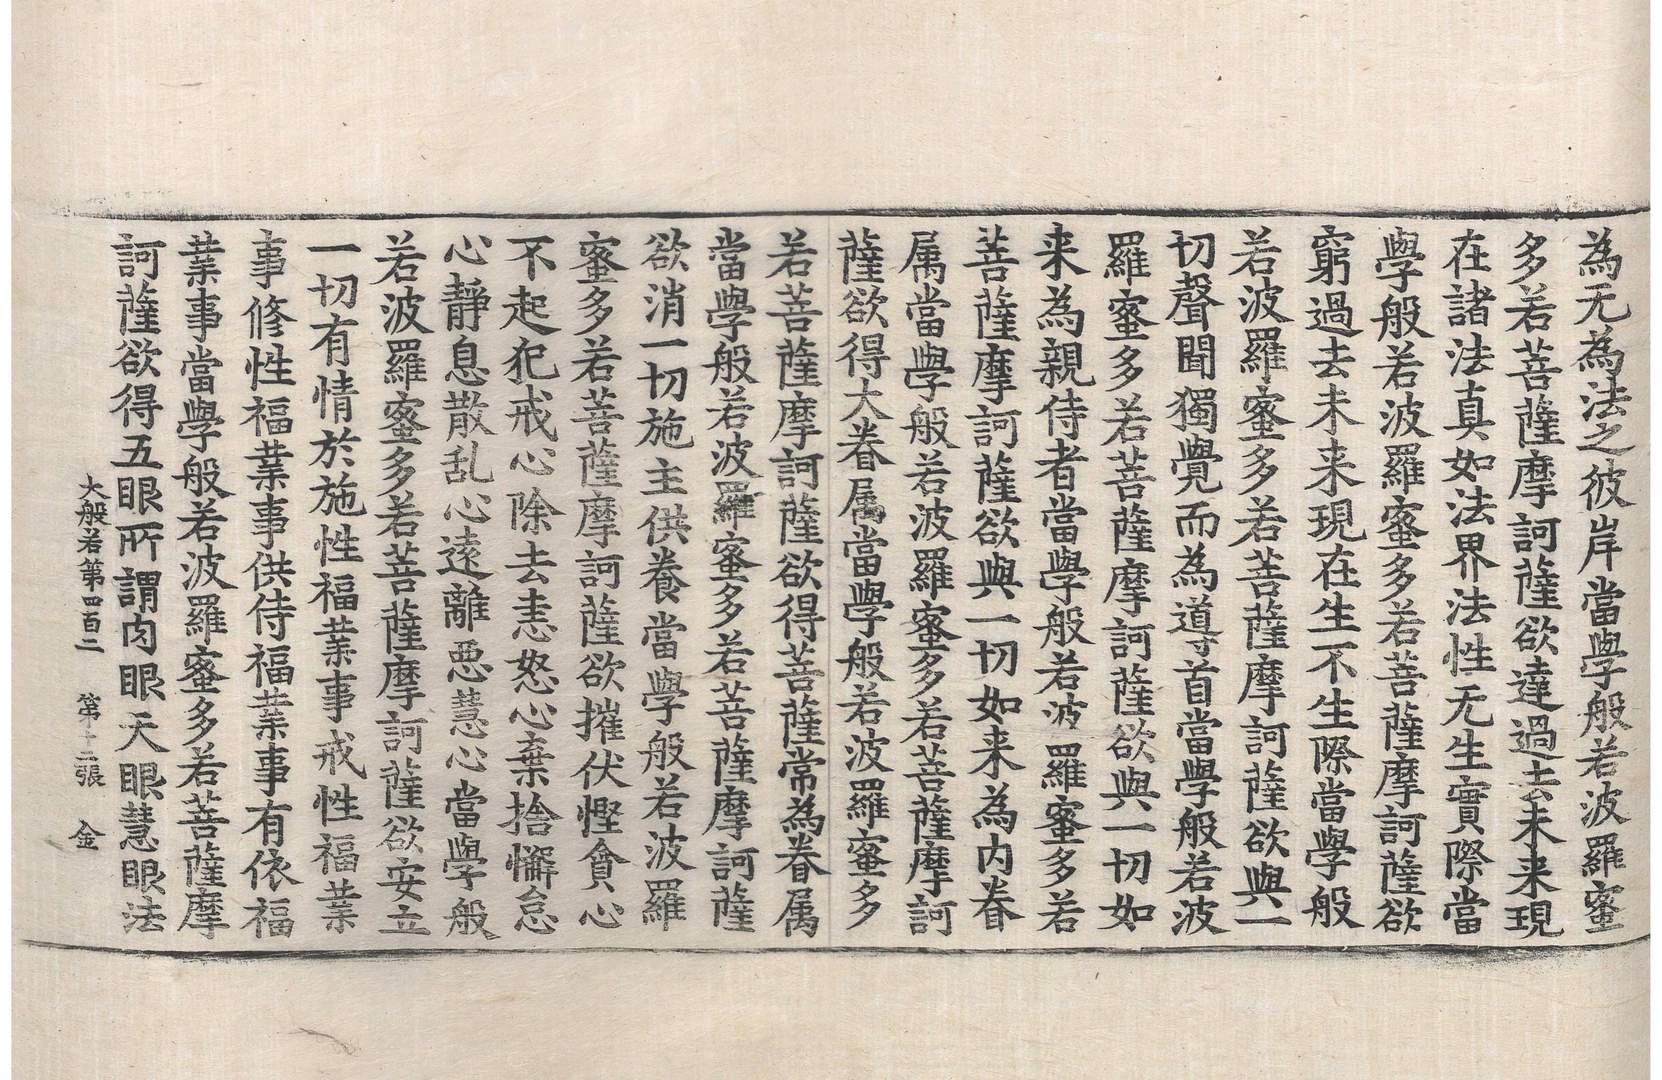 為无為法之彼岸當學般若波羅蜜
多若菩薩摩訶薩欲達過去未来現
在諸法真如法界法性无生實際當
學般若波羅蜜多若菩薩摩訶薩欲
窮過去未来現在生不生際當學般
若波羅蜜多若菩薩摩訶薩欲與一
切聲聞獨覺而為導首當學般若波
羅蜜多若菩薩摩訶薩欲與一切如
来為親侍者當學般若波羅蜜多若
菩薩摩訶薩欲與一切如来為内眷
属當學般若波羅蜜多若菩薩摩訶
薩欲得大眷属當學般若波羅蜜多
若菩薩摩訶薩欲得菩薩常為眷属
當學般若波羅蜜多若菩薩摩訶薩
欲消一切施主供養當學般若波羅
蜜多若菩薩摩訶薩欲摧伏慳貪心
不起犯戒心除去恚怒心棄捨懈怠
心靜息散乱心遠離惡慧心當學般
若波羅蜜多若菩薩摩訶薩欲安立
一切有情於施性福業事戒性福業
事修性福業事供侍福業事有依福
業事當學般若波羅蜜多若菩薩摩
訶薩欲得五眼所謂肉眼天眼慧眼法
大般若第四百二 第十二張 金